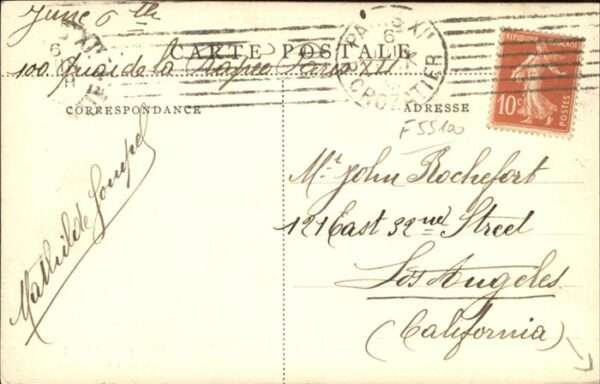 June 6th
CARTE POSTALE
100, Quai de la Rapée Paris XII
CORRESPONDANCE
ADRESSE
PARIS XII
CROZATIER
10c
POSTES
F55100
Mr John Rochefort
121 East 32nd Street
Los Angeles
(California)
Mathilde